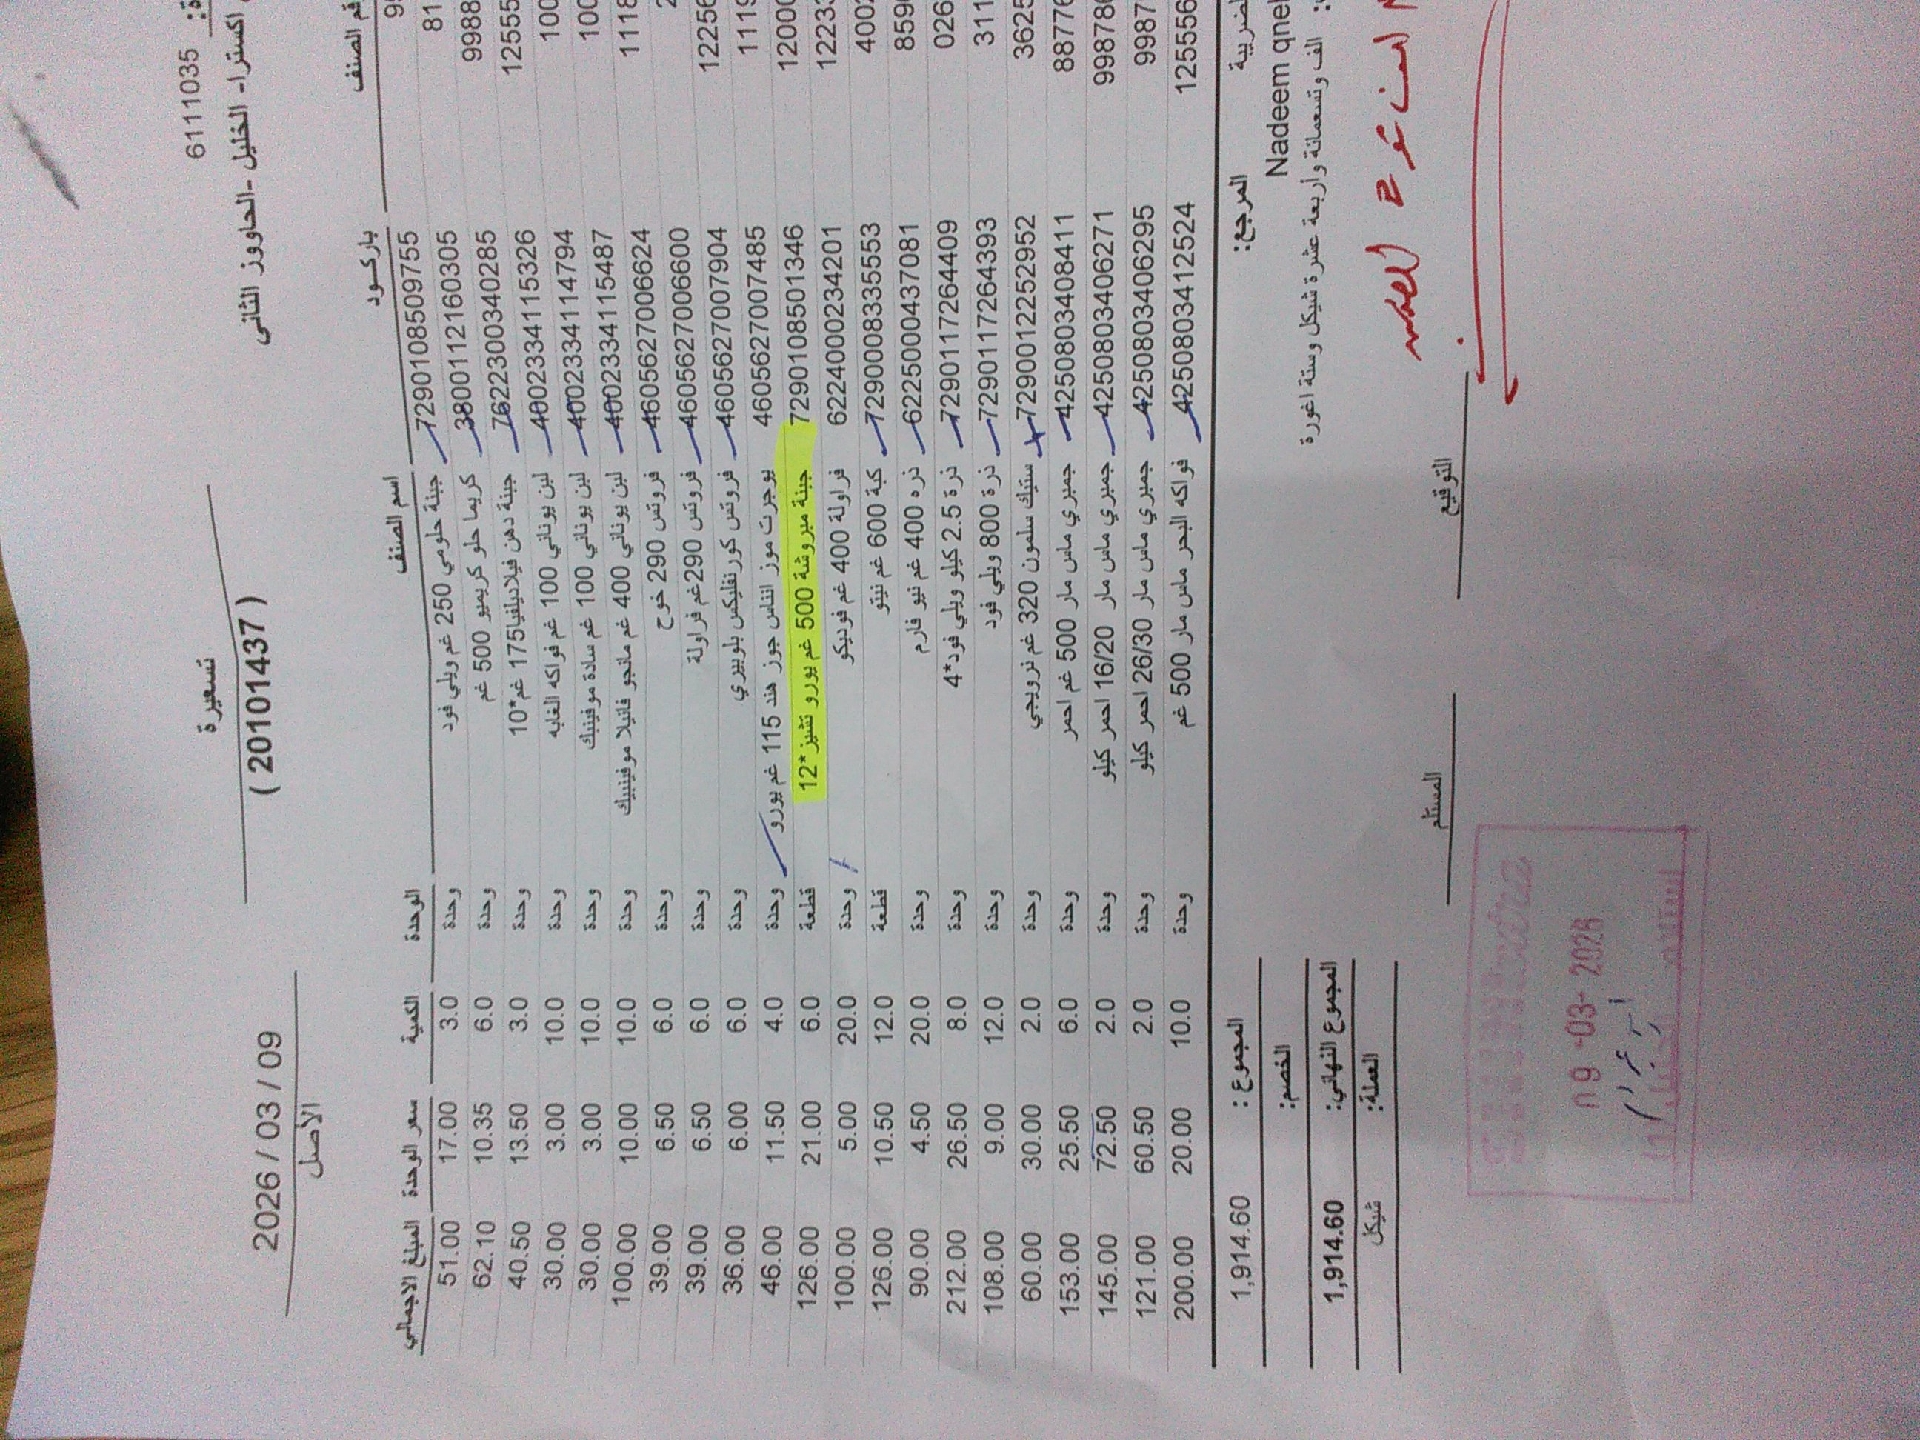 6111035
اكسترا- الخليل -الحاووز الثاني
تسعيرة
( 20101437 )
2026 / 03 / 09
الأصل
رقم الصنف باركود اسم الصنف الوحدة الكمية سعر الوحدة المبلغ الاجمالي
7290108509755 جبنة حلومي 250 غم ويلي فود وحدة 3.0 17.00 51.00
3800112160305 كريما حلو كريميو 500 غم وحدة 6.0 10.35 62.10
7622300340285 جبنة دهن فيلاديلفيا175 غم*10 وحدة 3.0 13.50 40.50
4002334115326 لبن يوناني 100 غم فواكه الغابه وحدة 10.0 3.00 30.00
4002334114794 لبن يوناني 100 غم سادة موفينبك وحدة 10.0 3.00 30.00
4002334115487 لبن يوناني 400 غم مانجو فانيلا موفينبيك وحدة 10.0 10.00 100.00
4605627006624 فروتس 290 خوخ وحدة 6.0 6.50 39.00
4605627006600 فروتس 290غم فراولة وحدة 6.0 6.50 39.00
4605627007904 فروتس كورنفليكس بلوبيري وحدة 6.0 6.00 36.00
4605627007485 يوجرت موز اناناس جوز هند 115 غم يورو وحدة 4.0 11.50 46.00
7290108501346 جبنة مبروشة 500 غم يورو تشيز *12 قطعة 6.0 21.00 126.00
6224000234201 فراولة 400 غم فوديكو وحدة 20.0 5.00 100.00
7290008335553 كبة 600 غم نيتو قطعة 12.0 10.50 126.00
6225000437081 ذره 400 غم نيو فارم وحدة 20.0 4.50 90.00
7290117264409 ذرة 2.5 كيلو ويلي فود*4 وحدة 8.0 26.50 212.00
7290117264393 ذرة 800 ويلي فود وحدة 12.0 9.00 108.00
7290012252952 ستيك سلمون 320 غم نرويجي وحدة 2.0 30.00 60.00
4250803408411 جمبري ماس مار 500 غم احمر وحدة 6.0 25.50 153.00
4250803406271 جمبري ماس مار 16/20 احمر كيلو وحدة 2.0 72.50 145.00
4250803406295 جمبري ماس مار 26/30 احمر كيلو وحدة 2.0 60.50 121.00
4250803412524 فواكه البحر ماس مار 500 غم وحدة 10.0 20.00 200.00
المرجع:
المجموع : 1,914.60
Nadeem qnei
الخصم:
الف وتسعمائة واربعة عشرة شيكل وستة اغورة
المجموع النهائي: 1,914.60
العملة: شيكل
التوقيع
المستلم
09 -03- 2026